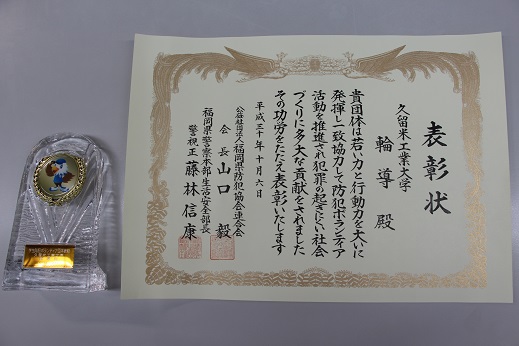 表彰状
久留米工業大学
輪導 殿
貴団体は若い力と行動力を大いに
発揮し一致協力して防犯ボランティア
活動を推進され犯罪の起きにくい社会
づくりに多大な貢献をされました
その功労をたたえ表彰いたします
平成三十年十月六日
公益社団法人福岡県防犯協会連合会
会長 山口 毅
福岡県警察本部生活安全部長
警視正 藤林信康